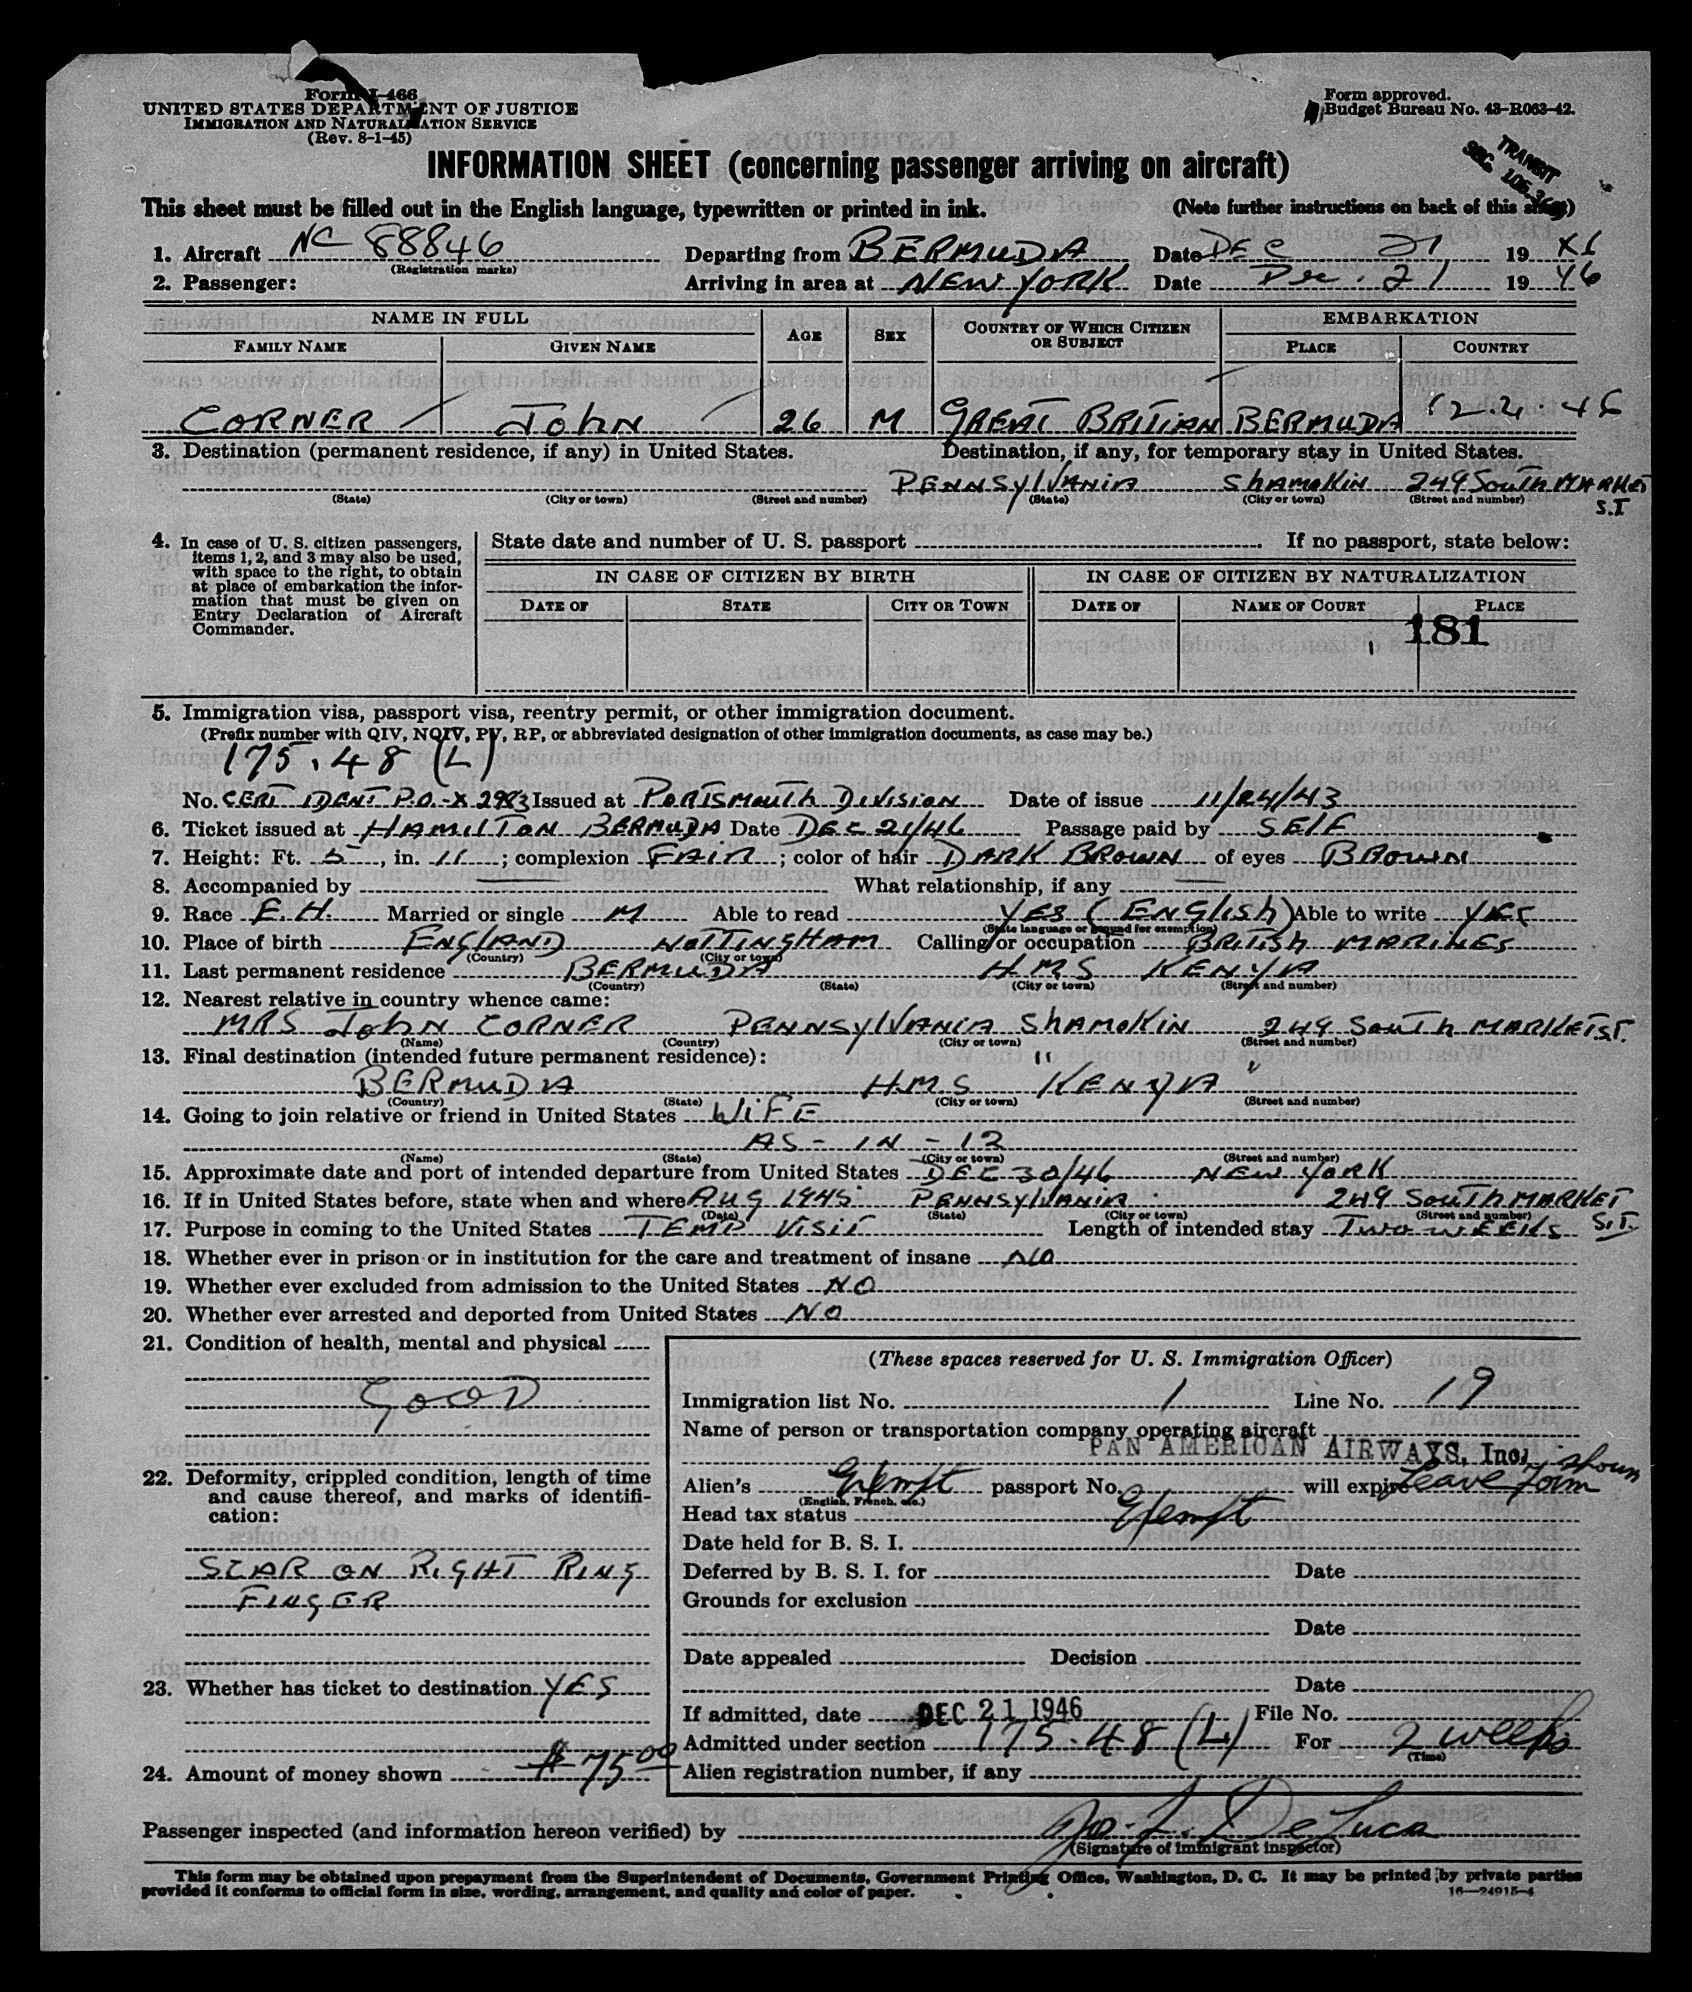 Form I-466
UNITED STATES DEPARTMENT OF JUSTICE
IMMIGRATION AND NATURALIZATION SERVICE
(Rev. 8-1-45)
Form approved.
Budget Bureau No. 43-R063-42.
TRANSIT
SEC.
INFORMATION SHEET (concerning passenger arriving on aircraft)
This sheet must be filled out in the English language, typewritten or printed in ink. (Note further instructions on back of this sheet)
1. Aircraft NC 88846 Departing from BERMUDA Date DEC 21 19
(Registration marks)
2. Passenger: Arriving in area at NEW YORK Date Dec. 21 19 46
NAME IN FULL AGE SEX COUNTRY OF WHICH CITIZEN OR SUBJECT EMBARKATION
FAMILY NAME GIVEN NAME PLACE COUNTRY
CORNER John 26 M GREAT BRITIAN BERMUDA
3. Destination (permanent residence, if any) in United States. Destination, if any, for temporary stay in United States.
PENNSylVANIA ShAMOKIN 249 South MARKET
(State) (City or town) (Street and number) (State) (City or town) (Street and number)
S.T
4. In case of U. S. citizen passengers, items 1, 2, and 3 may also be used, with space to the right, to obtain at place of embarkation the information that must be given on Entry Declaration of Aircraft Commander.
State date and number of U. S. passport If no passport, state below:
IN CASE OF CITIZEN BY BIRTH IN CASE OF CITIZEN BY NATURALIZATION
DATE OF STATE CITY OR TOWN DATE OF NAME OF COURT PLACE
181
5. Immigration visa, passport visa, reentry permit, or other immigration document.
(Prefix number with QIV, NQIV, PV, RP, or abbreviated designation of other immigration documents, as case may be.)
175.48 (L)
No. CERT IDENT P.O.-X 2983 Issued at PORTSMOUTH DIVISION Date of issue 11/24/43
6. Ticket issued at HAMILTON BERMUDA Date DEC 21/46 Passage paid by SELF
7. Height: Ft. 5, in. 11; complexion FAIR; color of hair DARK BROWN of eyes BROWN
8. Accompanied by What relationship, if any
9. Race E.H. Married or single M Able to read YES (ENGlish) Able to write YES
(State language or ground for exemption)
10. Place of birth ENGlAND NOTTINGHAM Calling or occupation BRITISH MARINES
(Country) (City or town)
11. Last permanent residence BERMUDA HMS KENYA
(Country) (State) (City or town) (Street and number)
12. Nearest relative in country whence came:
MRS John CORNER PENNSylVANIA ShAMOKIN 249 South MARKET ST.
(Name) (Country) (City or town) (Street and number)
13. Final destination (intended future permanent residence):
BERMUDA H.M.S "KENYA"
(Country) (State) (City or town) (Street and number)
14. Going to join relative or friend in United States WIFE
AS - IN - 12
(Name) (State) (City or town) (Street and number)
15. Approximate date and port of intended departure from United States DEC 30/46 NEW YORK
16. If in United States before, state when and where AUG 1945 PENNSylVANIA 249 South MARKET
(Date) (State) (City or town) (Street and number)
S.T.
17. Purpose in coming to the United States TEMP VISIT Length of intended stay Two WEEKS
18. Whether ever in prison or in institution for the care and treatment of insane NO
19. Whether ever excluded from admission to the United States NO
20. Whether ever arrested and deported from United States NO
21. Condition of health, mental and physical
GOOD
22. Deformity, crippled condition, length of time
and cause thereof, and marks of identifi-
cation:
SCAR ON RIGHT RING
FINGER
23. Whether has ticket to destination YES
24. Amount of money shown $75.00
(These spaces reserved for U. S. Immigration Officer)
Immigration list No. 1 Line No. 19
Name of person or transportation company operating aircraft
PAN AMERICAN AIRWAYS, Inc.
Alien's Exempt passport No. will expire Leave form shown
(English, French, etc.)
Head tax status Exempt
Date held for B. S. I.
Deferred by B. S. I. for Date
Grounds for exclusion
Date
Date appealed Decision
Date
If admitted, date DEC 21 1946 File No.
Admitted under section 175.48 (L) For 2 weeks
(Time)
Alien registration number, if any
Passenger inspected (and information hereon verified) by Jos. L. DeLuca
(Signature of immigrant inspector)
This form may be obtained upon prepayment from the Superintendent of Documents, Government Printing Office, Washington, D. C. It may be printed by private parties
provided it conforms to official form in size, wording, arrangement, and quality and color of paper.
16—24915-4